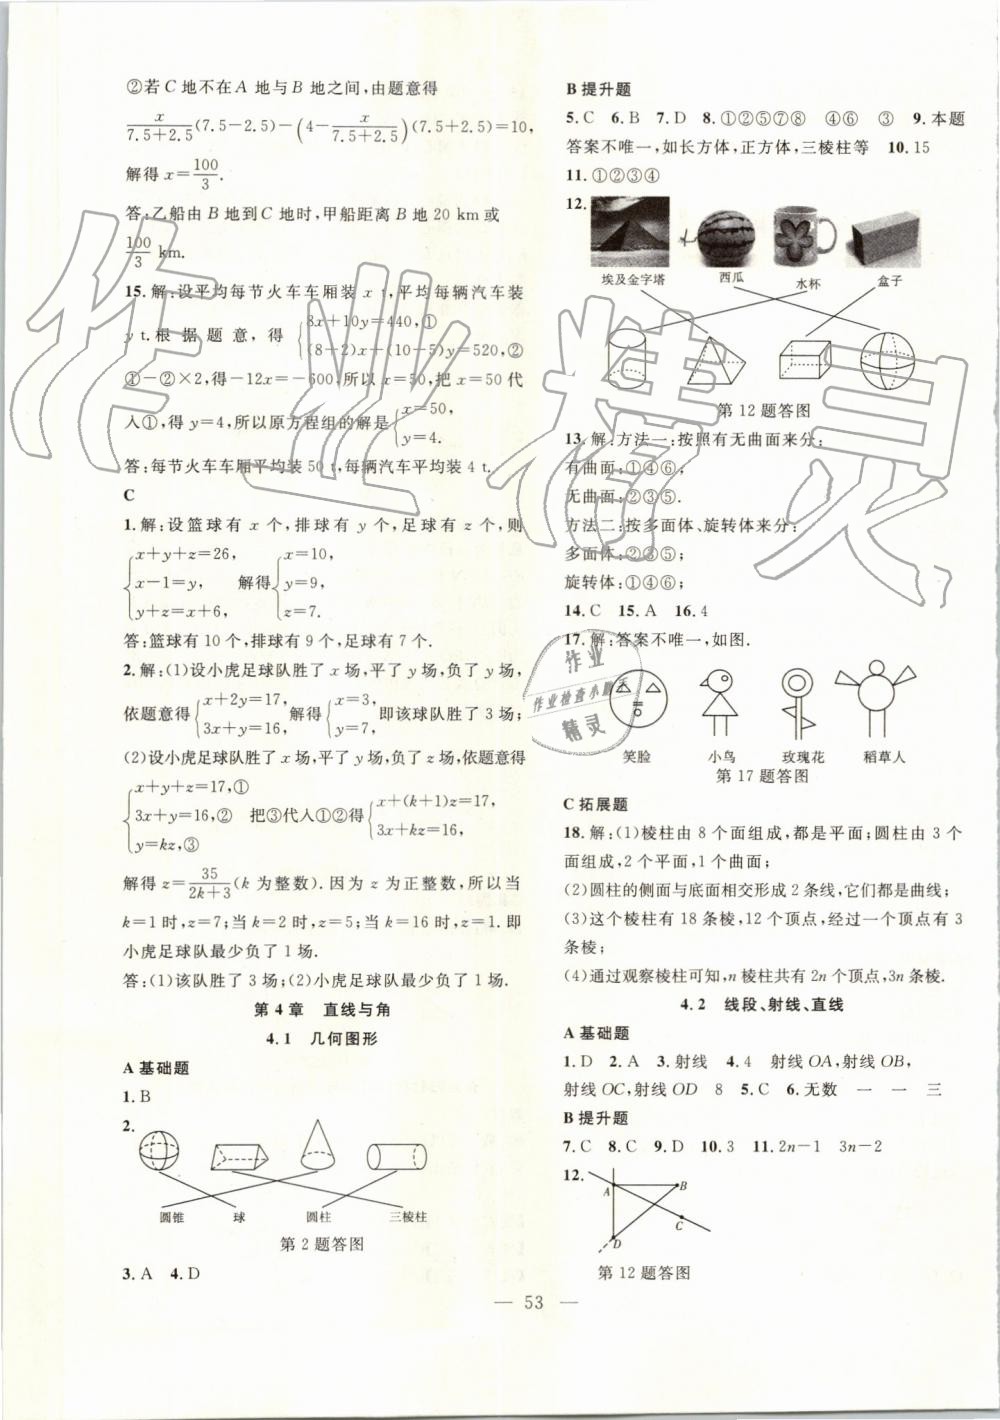 ②若C地不在A地与B地之间,由题意得
x/(7.5+2.5)(7.5-2.5)-(4-x/(7.5+2.5))(7.5+2.5)=10,
解得x=100/3.
答:乙船由B地到C地时,甲船距离B地20 km或
100/3 km.
15.解:设平均每节火车车厢装x t,平均每辆汽车装
y t.根据题意,得{8x+10y=440,①
(8+2)x+(10+5)y=520,②
①-②×2,得-12x=-600,所以x=50,把x=50代
入①,得y=4,所以原方程组的解是{x=50,
y=4.
答:每节火车车厢平均装50 t,每辆汽车平均装4 t.
C
1.解:设篮球有x个,排球有y个,足球有z个,则
{x+y+z=26,
x-1=y,
y+z=x+6,
解得{x=10,
y=9,
z=7.
答:篮球有10个,排球有9个,足球有7个.
2.解:(1)设小虎足球队胜了x场,平了y场,负了y场,
依题意得{x+2y=17,
3x+y=16,
解得{x=3,
y=7,
即该球队胜了3场;
(2)设小虎足球队胜了x场,平了y场,负了z场,依题意得
{x+y+z=17,①
3x+y=16,②
y=kz,③
把③代入①②得{x+(k+1)z=17,
3x+kz=16,
解得z=35/(2k+3)(k为整数).因为z为正整数,所以当
k=1时,z=7;当k=2时,z=5;当k=16时,z=1.即
小虎足球队最少负了1场.
答:(1)该队胜了3场;(2)小虎足球队最少负了1场.
第4章 直线与角
4.1 几何图形
A基础题
1.B
2.
圆锥 球 圆柱 三棱柱
第2题答图
3.A 4.D
B提升题
5.C 6.B 7.D 8.①②⑤⑦⑧ ④⑥ ③ 9.本题
答案不唯一,如长方体,正方体,三棱柱等 10.15
11.①②③④
12.
埃及金字塔 西瓜 水杯 盒子
第12题答图
13.解:方法一:按照有无曲面来分:
有曲面:①④⑥;
无曲面:②③⑤.
方法二:按多面体、旋转体来分:
多面体:②③⑤;
旋转体:①④⑥;
14.C 15.A 16.4
17.解:答案不唯一,如图.
笑脸 小鸟 玫瑰花 稻草人
第17题答图
C拓展题
18.解:(1)棱柱由8个面组成,都是平面;圆柱由3个
面组成,2个平面,1个曲面;
(2)圆柱的侧面与底面相交形成2条线,它们都是曲线;
(3)这个棱柱有18条棱,12个顶点,经过一个顶点有3
条棱;
(4)通过观察棱柱可知,n棱柱共有2n个顶点,3n条棱.
4.2 线段、射线、直线
A基础题
1.D 2.A 3.射线 4.4 射线OA,射线OB,
射线OC,射线OD 8 5.C 6.无数 一 一 三
B提升题
7.C 8.C 9.D 10.3 11.2n-1 3n-2
12.
A B
C
D
第12题答图
— 53 —
作业精灵
作业
作业检查小助手
精灵